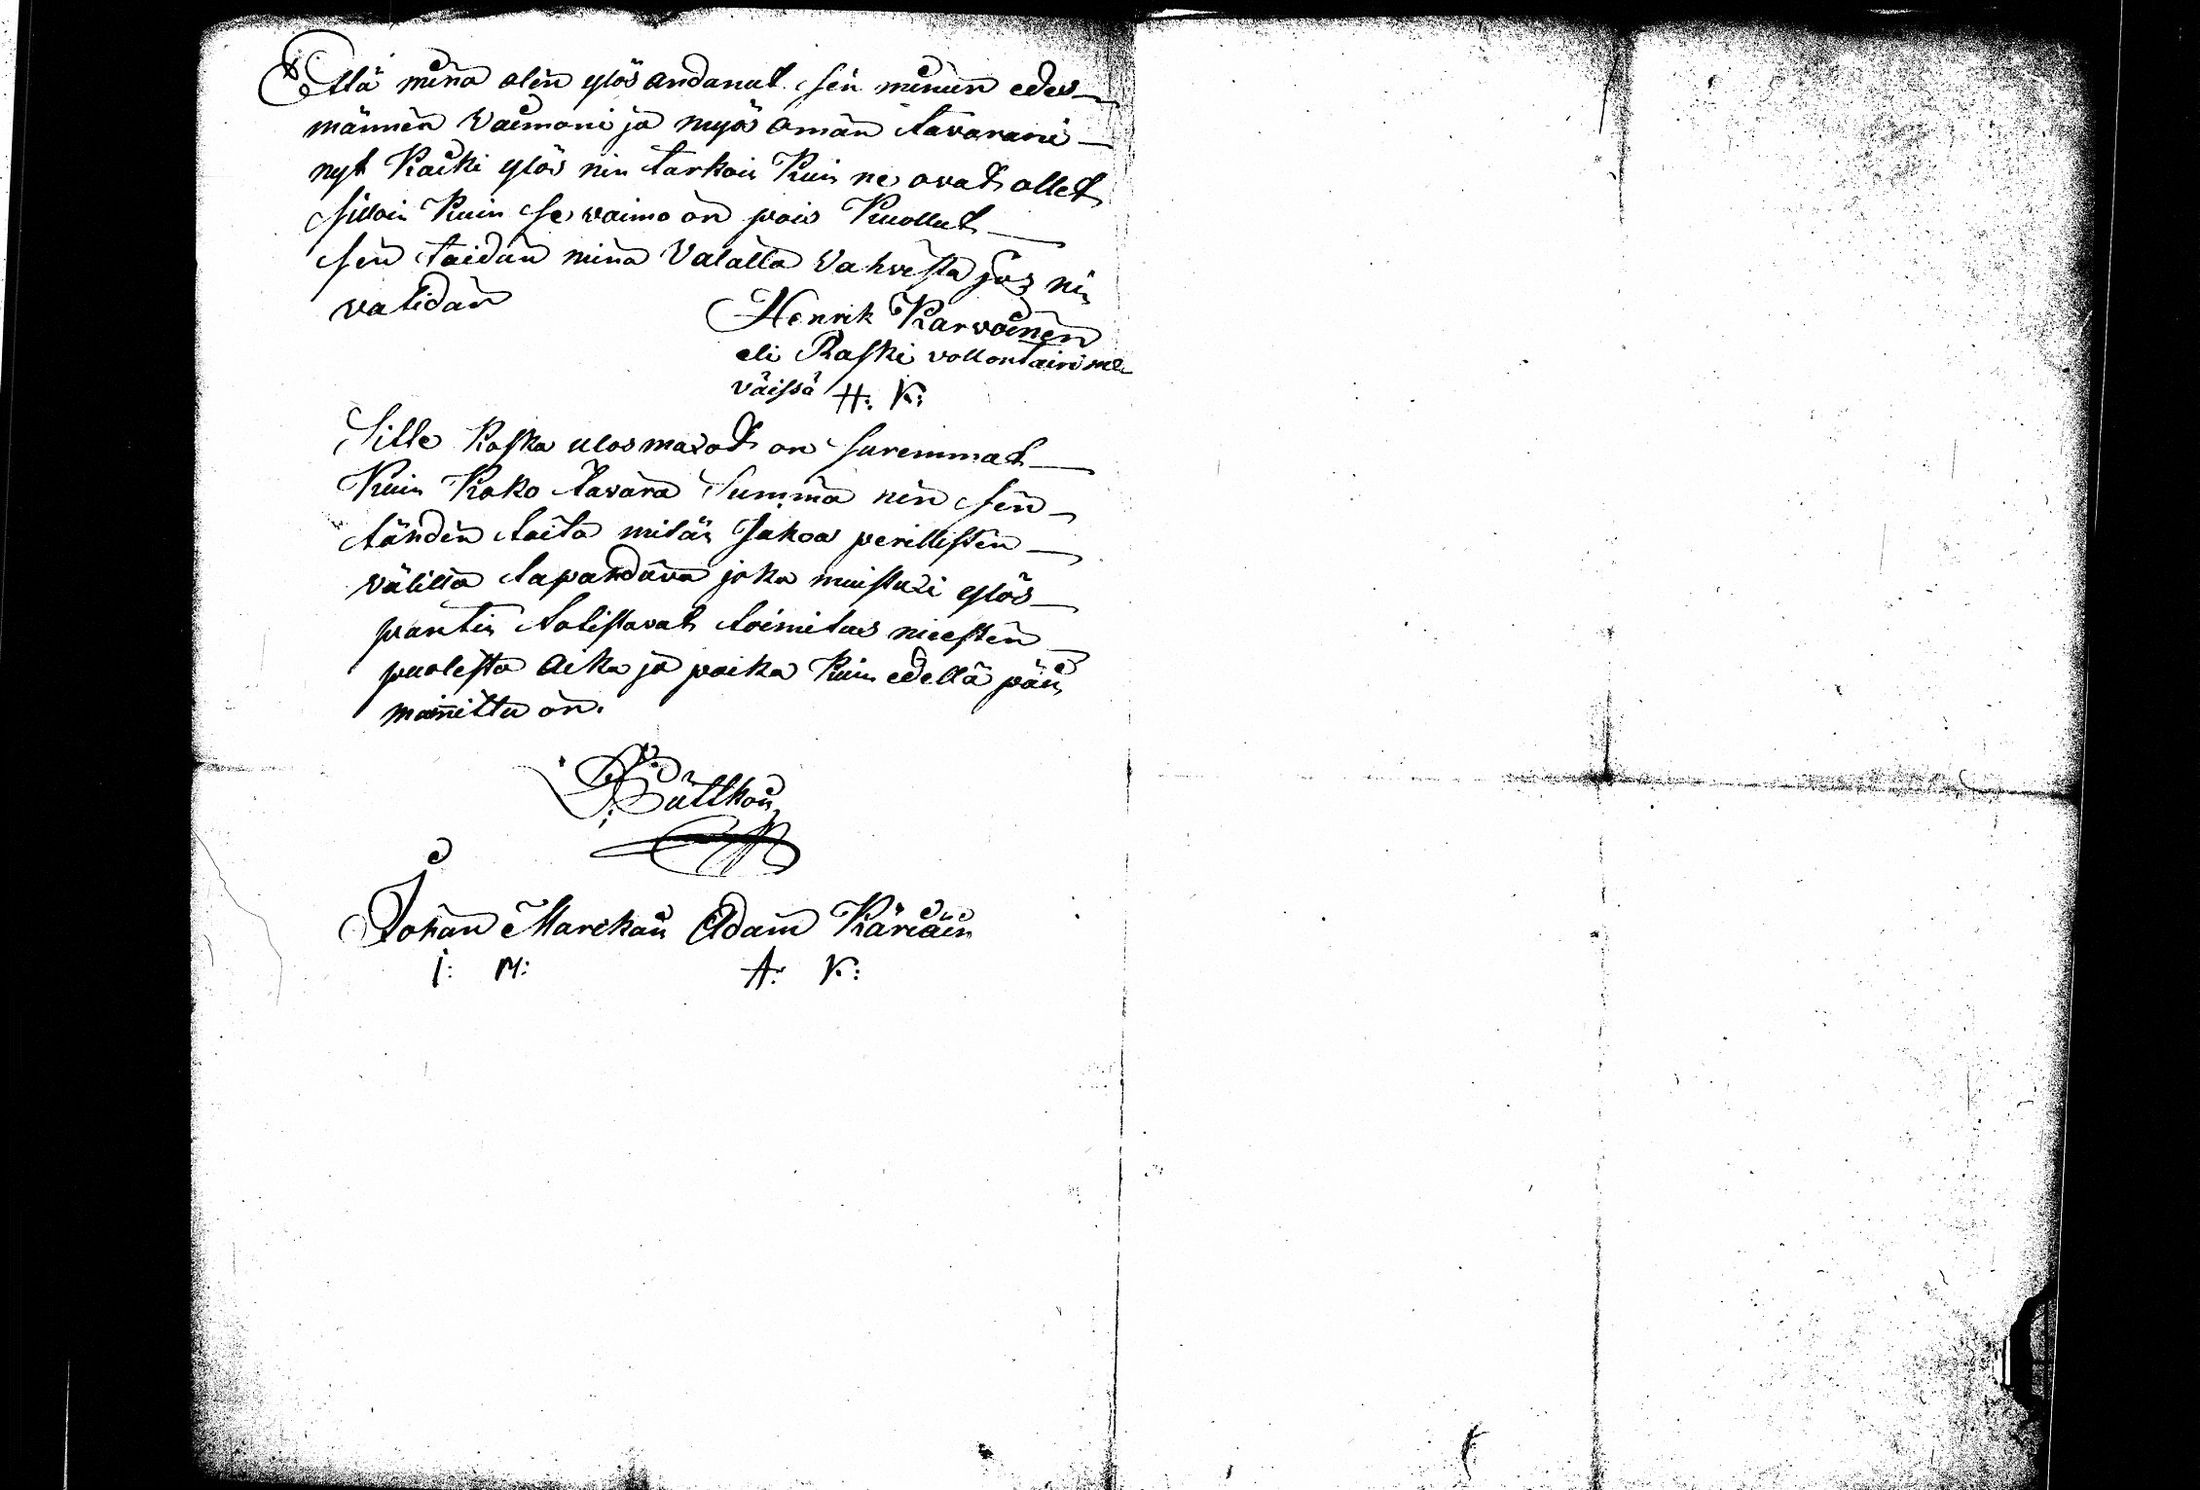 Että minä olen ylös andanut sen minun edes
männen Vaimoni ja myös oman tavarani
nyt Kaiki ylös nin tarkoin Kuin ne ovat ollet
silloin Kuin se vaimo on pois Kuollut
sen taidan minä Valalla Vahvista jos nin
vatidan
Henrik Karvoinen
eli Raski vollontairi
väissä H: K:
Sille Koska ulosmaxot on suremmat
Kuin Koko tavara Summa nin sen
tähden taita mitän Jakoa perillisten
välillä tapahduva joka muistuxi ylös
pantin totistavat toimitus miesten
puolesta Aika ja paika Kuin edellä pän
mainittu on.
Püttkoin
Johan Marckain Adam Käriäin
J: M: A: K: